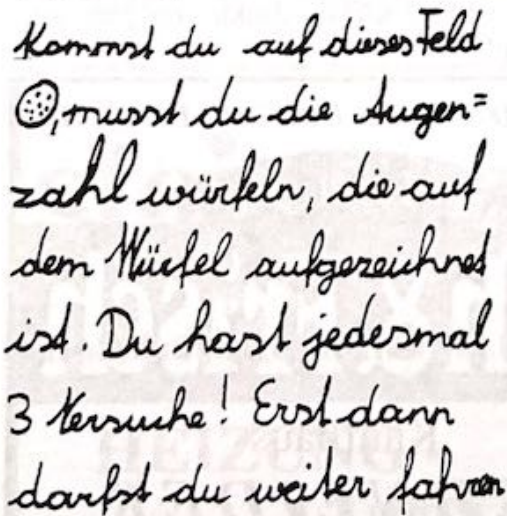 Kommst du auf dieses Feld
, musst du die Augen=
zahl würfeln, die auf
dem Würfel aufgezeichnet
ist. Du hast jedesmal
3 Versuche! Erst dann
darfst du weiter fahren